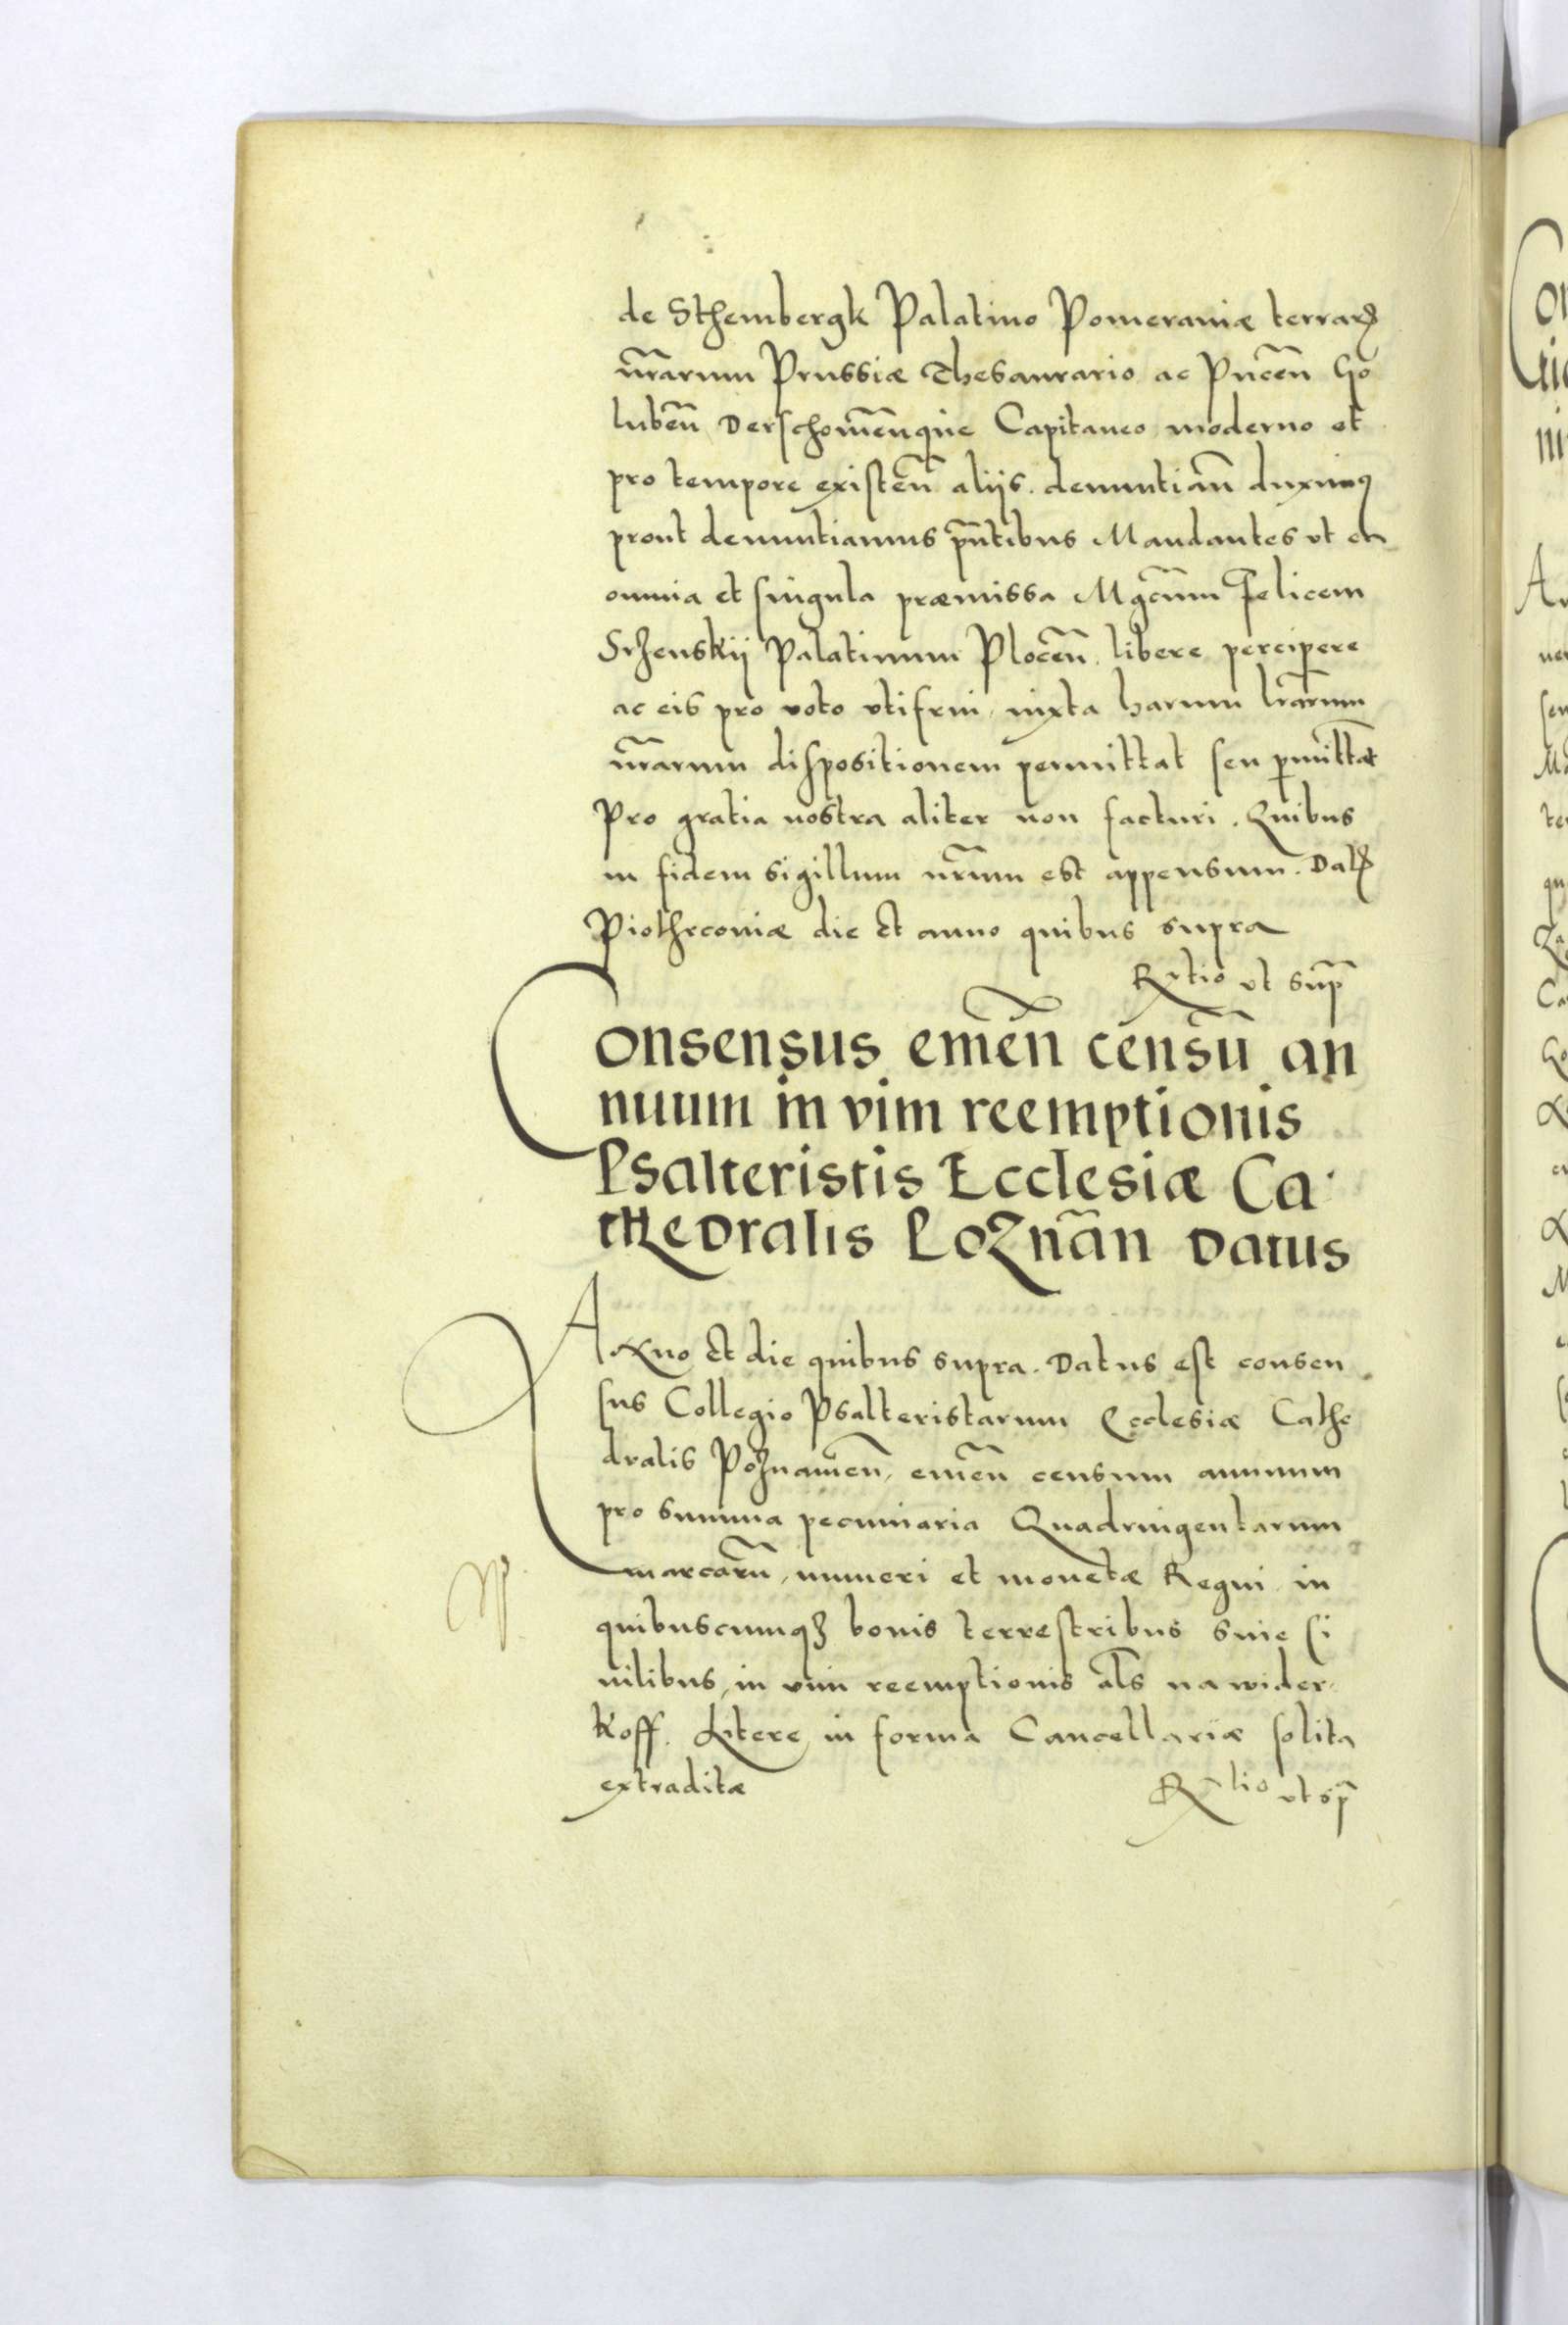 de Sthembergk Palatino Pomeraniæ terraꝝ
nr̃arum Prussiæ Thesaurario ac Pucen̄ Go
luben̄ Derschomen̄que Capitaneo moderno et
pro tempore existen̄ aliis. denuntian̄ duximꝰ
prout denuntiamus pñtibus Mandantes vt ea
omnia et singula præmissa Mgc̃um Felicem
Srzenskij Palatinum Plocen̄ libere percipere
ac eis pro voto vtifrui, iuxta harum lr̃arum
nr̃arum dispositionem permittat seu p̱mittãt
Pro gratia nostra aliter non facturi. Quibus
in fidem sigillum nr̃um est appensum. Datꝝ
Piothrconiæ die et anno quibus supra
R̃tio vt sup̃
Consensus emen̄ censū an
nuum in vim reemptionis
Psalteristis Ecclesiæ Ca
thedralis Poznan̄ Datus
Anno et die quibus supra. Datus est consen
sus Collegio Psalteristarum Ecclesiæ Cathe
dralis Poznanien̄, emen̄ censum annuum
pro summa pecuniaria Quadringentarum
marcarū, numeri et monetæ Regni in
quibuscumqꝫ bonis terrestribus siue ci
uilibus, in vim reemptionis al̃s na wider
koff. Litere in forma Cancellariæ solita
extraditæ
R̃tio vt sp̃